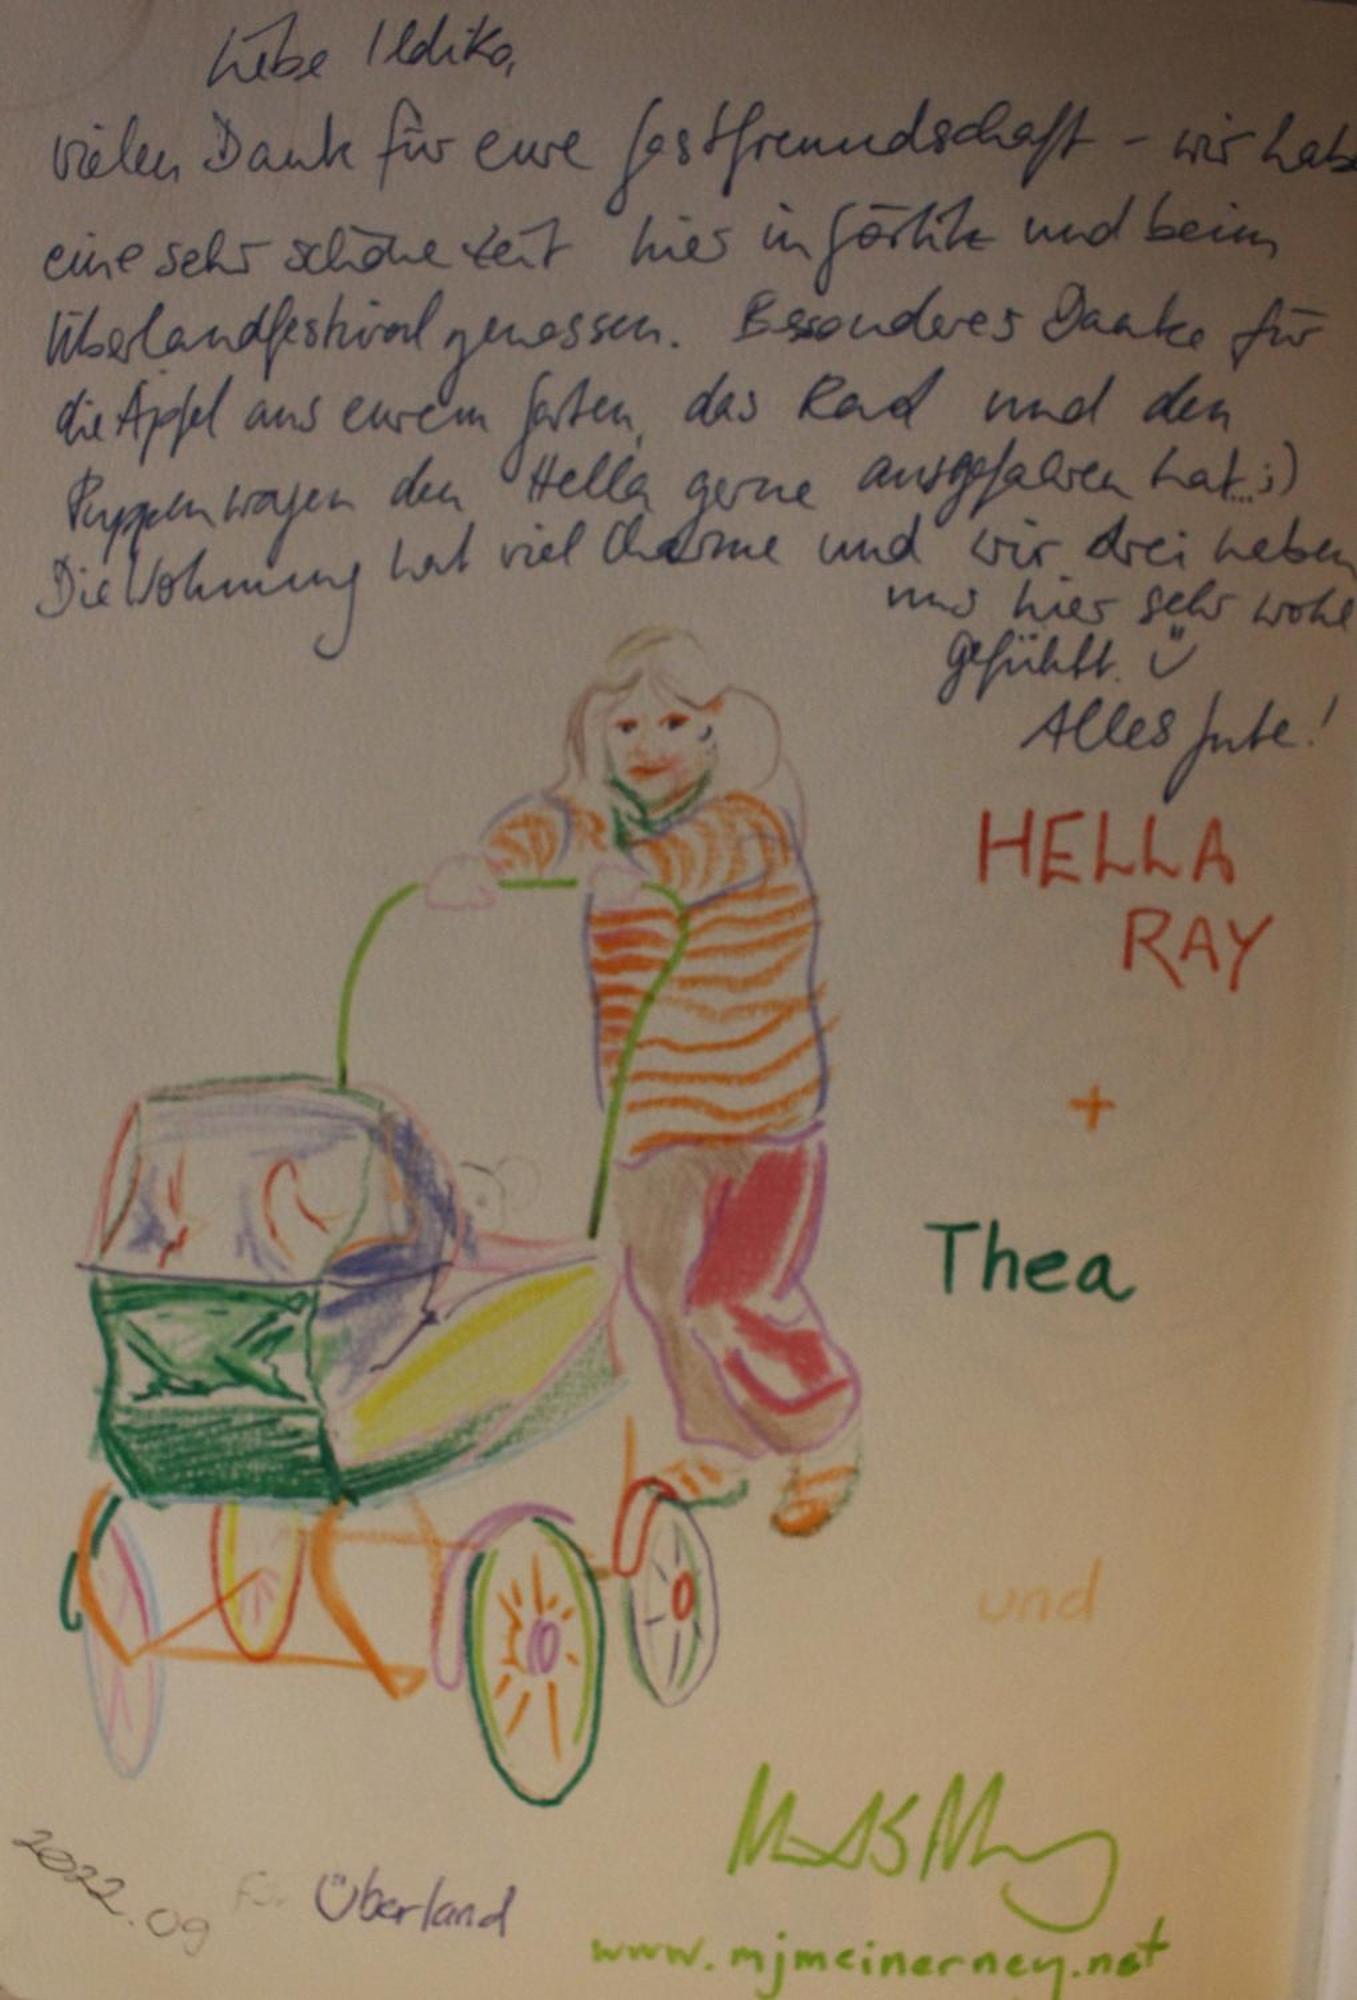 Liebe Ildiko,
vielen Dank für eure Gastfreundschaft - wir habe
eine sehr schöne Zeit hier in Görlitz und beim
Überlandfestival genossen. Besonderes Danke für
die Äpfel aus eurem Garten, das Rad und den
Puppenwagen den Hella gerne ausgefahren hat...;)
Die Wohnung hat viel Charme und wir drei haben
uns hier sehr wohl
gefühlt. Ü
Alles Gute!
HELLA
RAY
+
Thea
und
www.mjmcinerney.net
2022.09
Für Überland